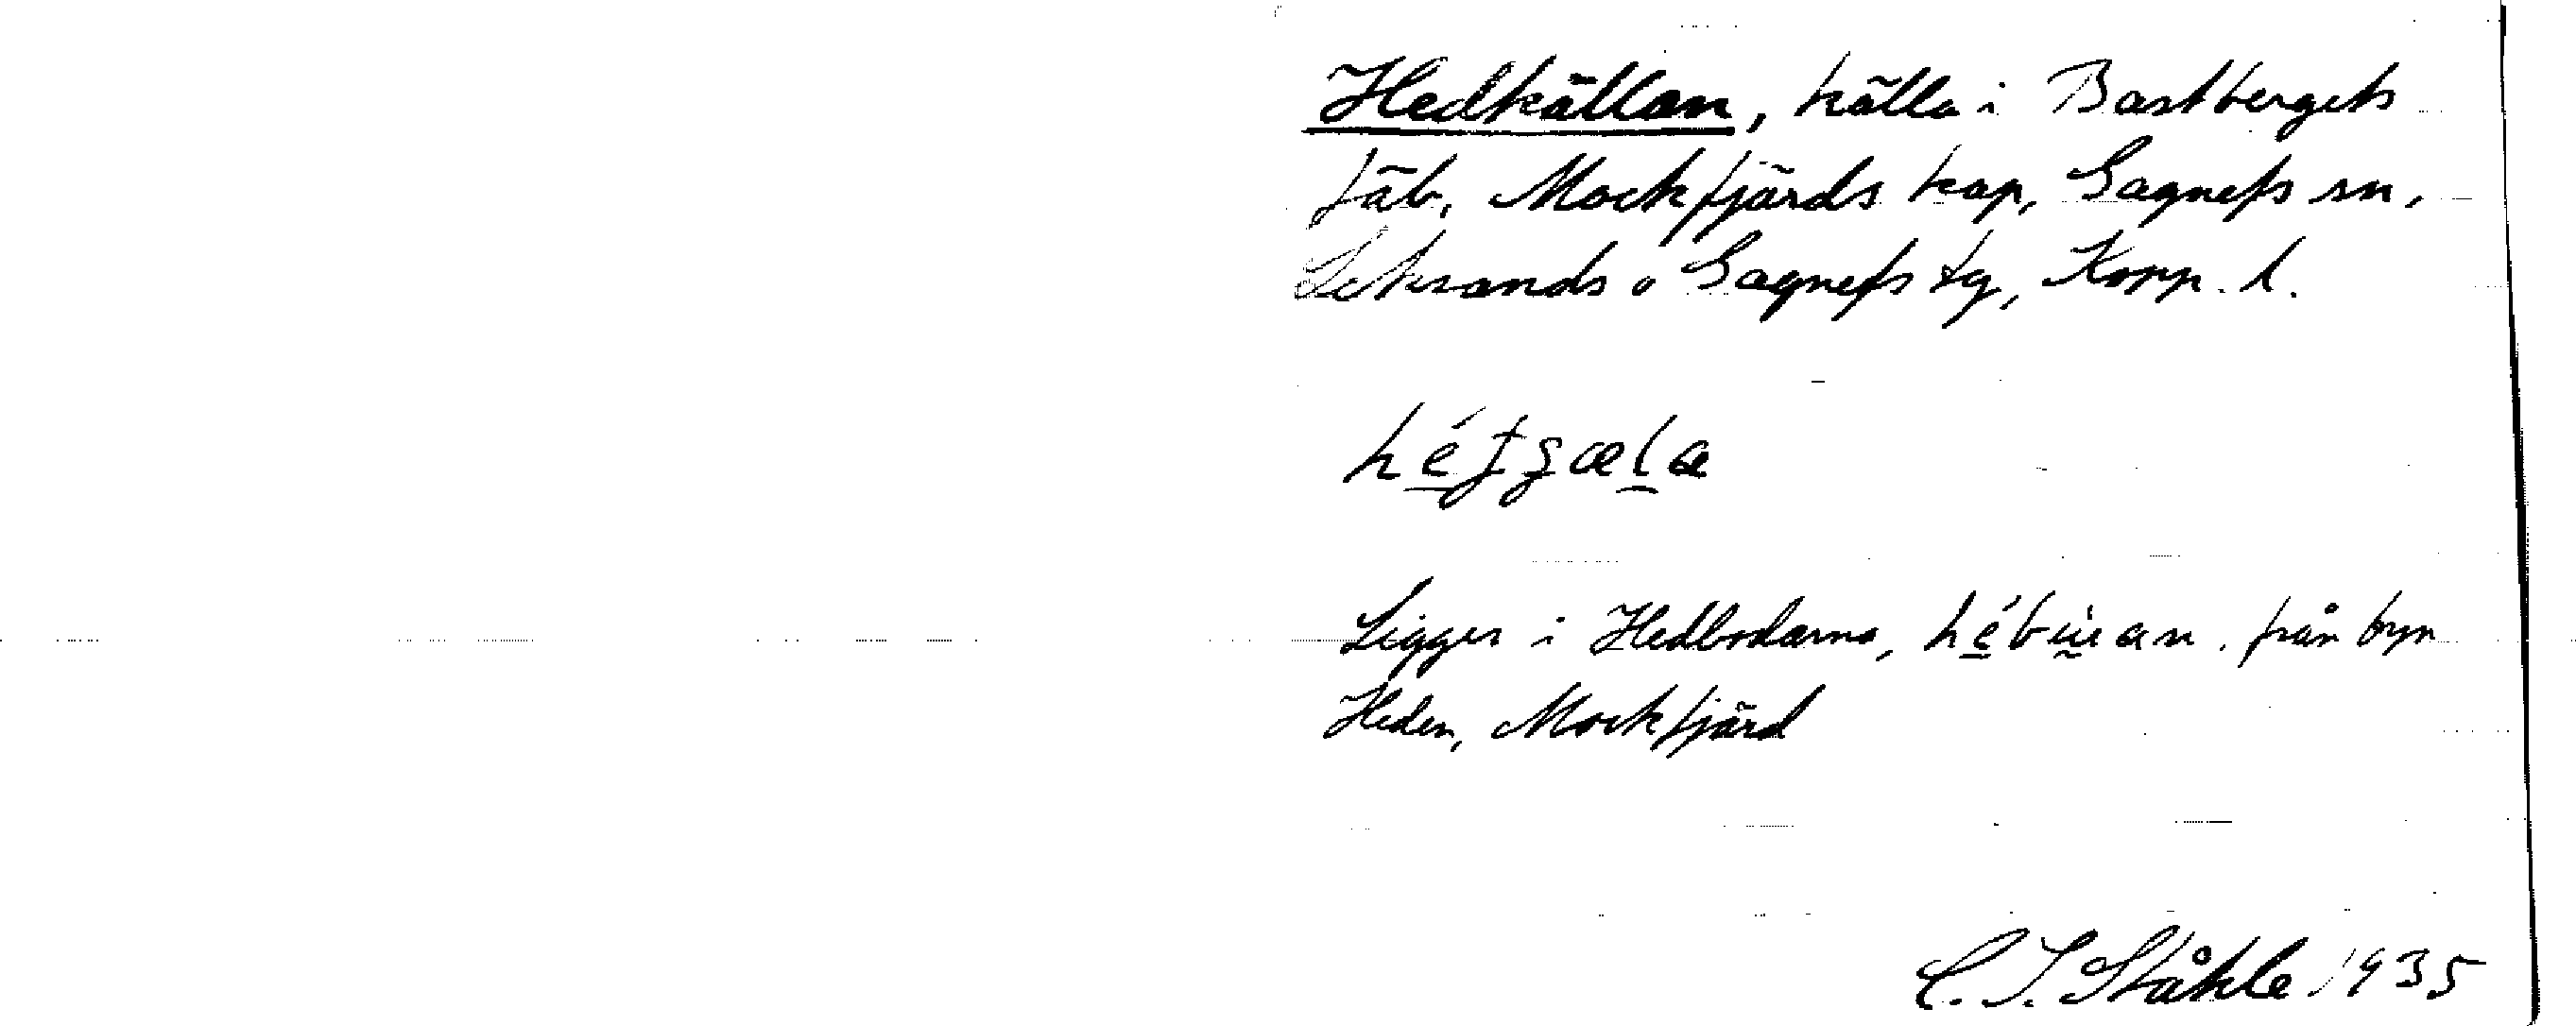 Hedkällan, källa i Bastbergets
fäb. Mockfjärds kap, Gagnefs sn.
Leksands o Gagnefs tg, Kopp. l.
Ligger i Hedbodarna, från byn
Heden, Mockfjärd
C. I. Ståhle 1935